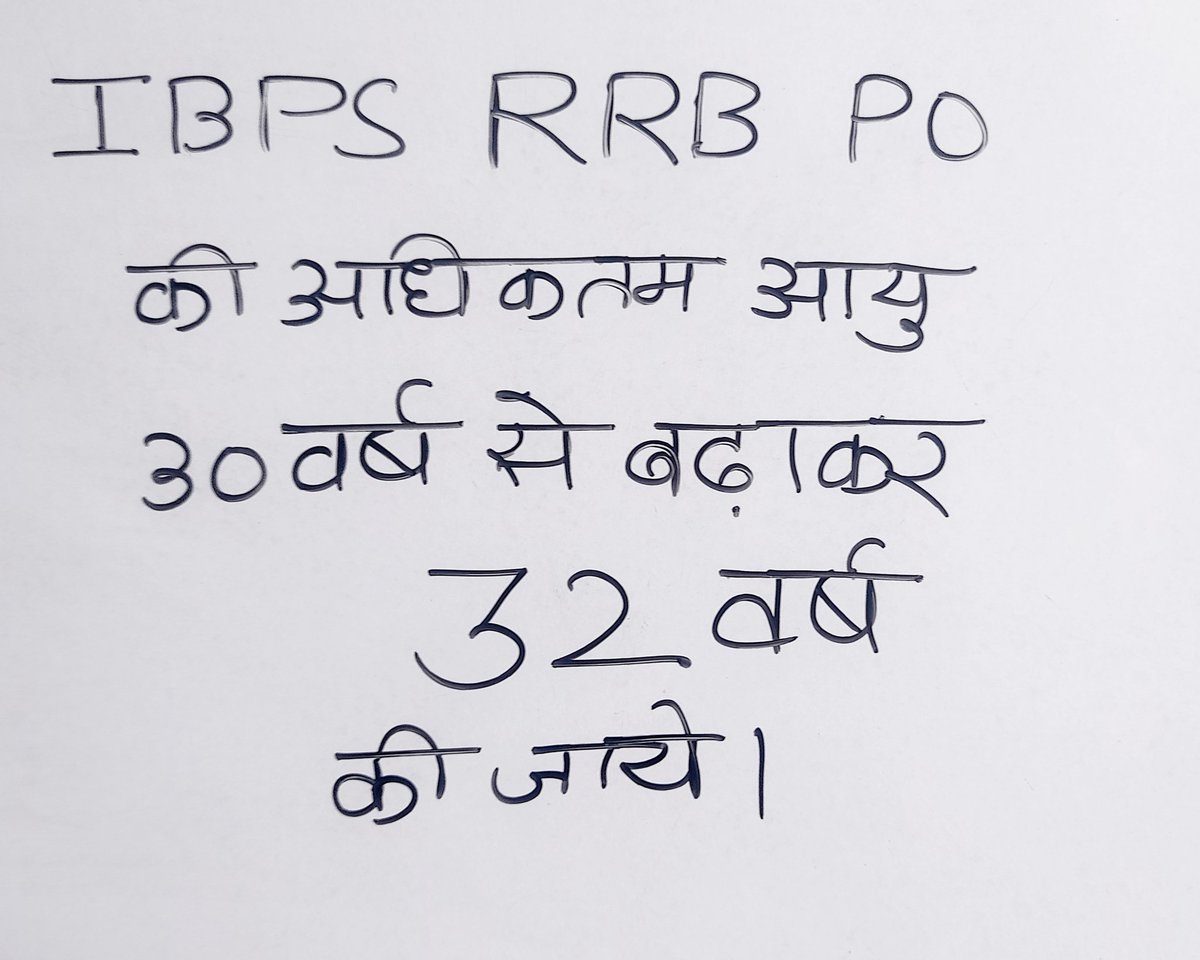 IBPS RRB PO
की अधिकतम आयु
30 वर्ष से बढ़ाकर
32 वर्ष
की जाये।